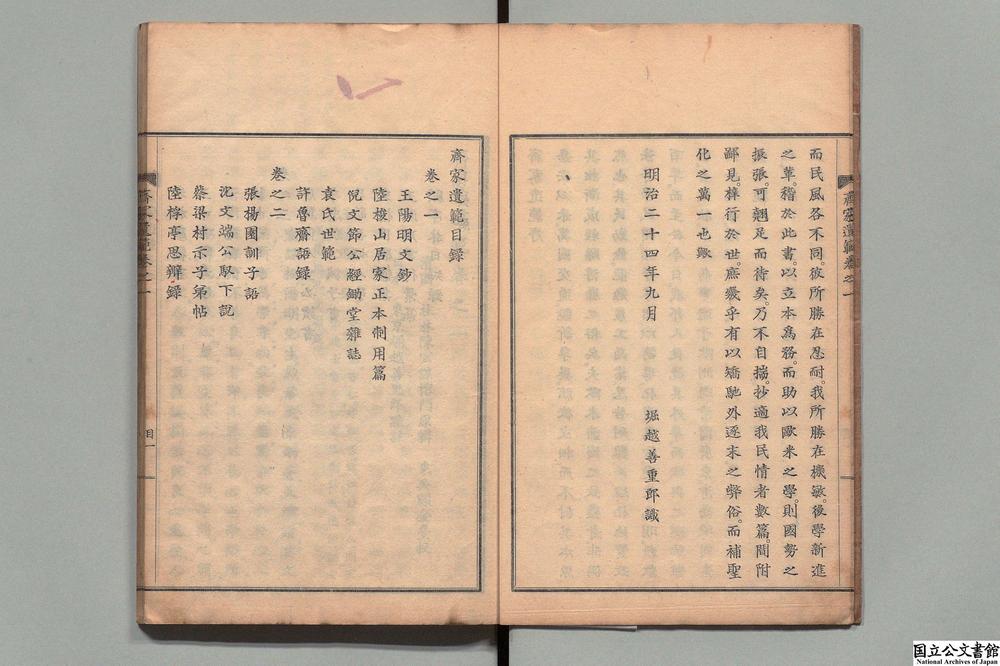 而民風各不同。彼所勝在忍耐。我所勝在機敏。後學新進
之草。稽於此書。以立本為務。而助以歐米之學。則國勢之
振張。可翹足而待矣。乃不自揣。抄適我民情者數篇。間附
鄙見。梓行於世。庶幾乎有以矯馳外逐末之弊俗。而補聖
化之萬一也歟
明治二十四年九月
堀越善重郎識
齊家遺範卷之一
齊家遺範目録
卷之一
王陽明文鈔
陸梭山居家正本制用篇
倪文節公經鋤堂雜誌
袁氏世範
許魯齋語録
卷之二
張楊園訓子語
沈文端公馭下說
蔡梁村示子弟帖
陸桴亭思辨録
齊家遺範卷之一
目一
国立公文書館
National Archives of Japan